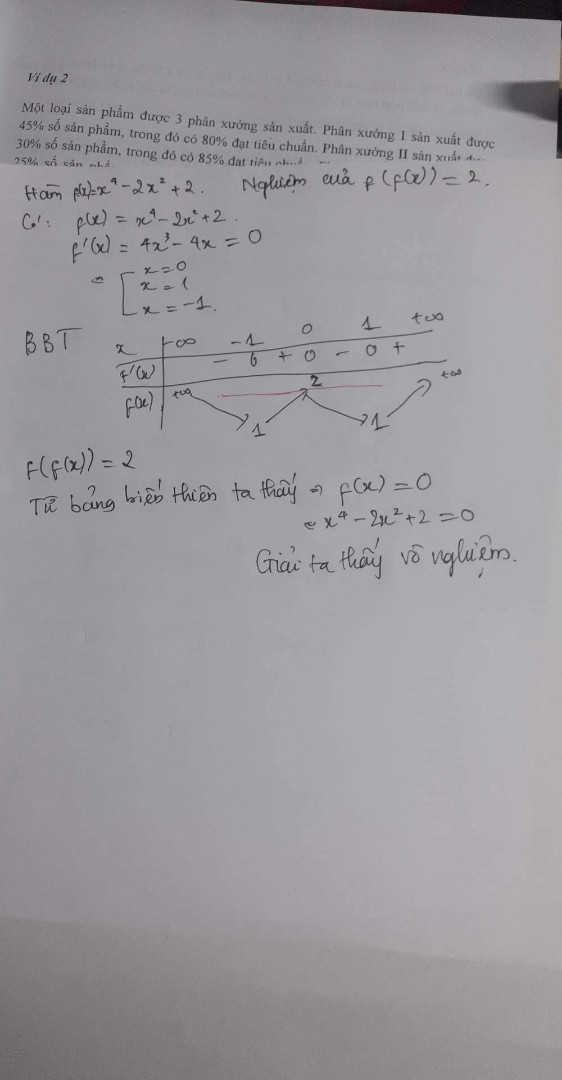 Ví dụ 2
Một loại sản phẩm được 3 phân xưởng sản xuất. Phân xưởng I sản xuất được
45% số sản phẩm, trong đó có 80% đạt tiêu chuẩn. Phân xưởng II sản xuất
30% số sản phẩm, trong đó có 85% đạt tiêu
25% số sản
Hàm f(x)=x⁴-2x²+2. Nghiệm của f(f(x))=2.
f(x) = x⁴-2x²+2.
f'(x) = 4x³-4x = 0
x=0
x=1
x=-1.
BBT x -∞ -1 0 1 +∞
f'(x) - 0 + 0 - 0 +
f(x) +∞ 1 2 1 +∞
f(f(x)) = 2
Từ bảng biến thiên ta thấy ⇒ f(x) = 0
x⁴-2x²+2 = 0
Giải ta thấy vô nghiệm.